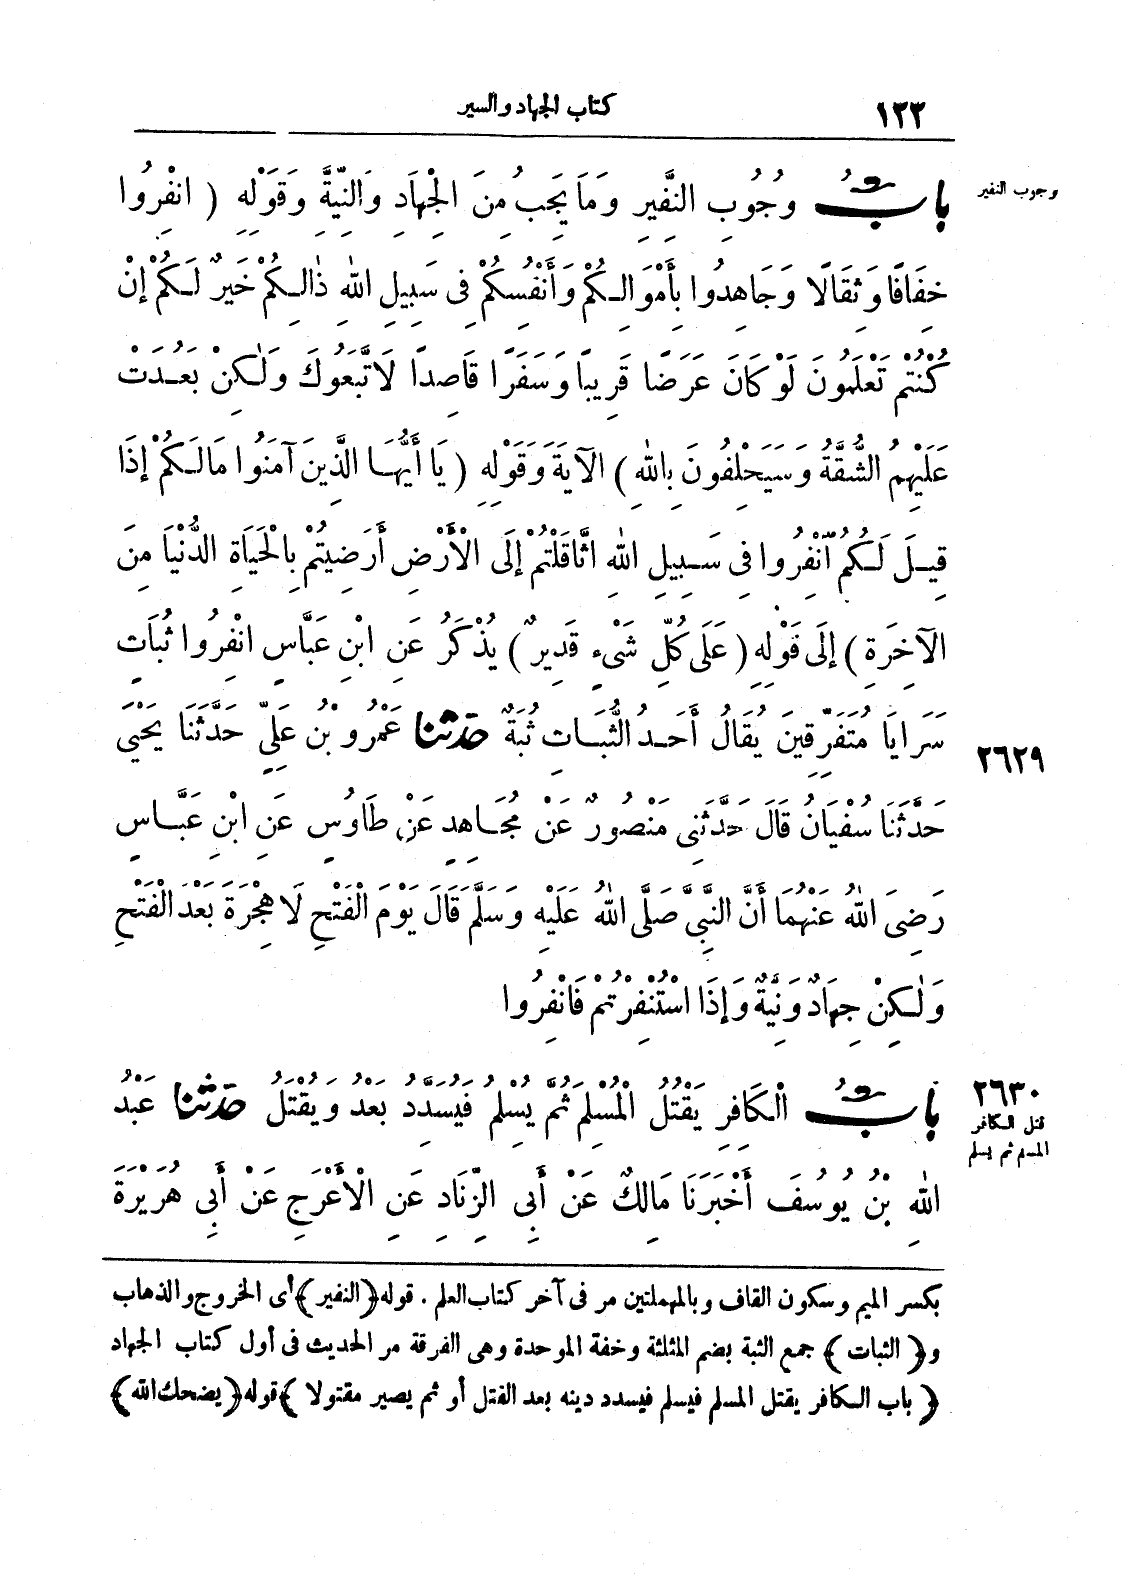 ١٢٢ كتاب الجهاد والسير
وجوب النفير
بابُ وُجُوبِ النَّفِيرِ وَمَا يَجِبُ مِنَ الْجِهَادِ وَالنِّيَّةِ وَقَوْلِهِ ( انْفِرُوا
خِفَافًا وَثِقَالًا وَجَاهِدُوا بِأَمْوَالِكُمْ وَأَنْفُسِكُمْ فِى سَبِيلِ اللهِ ذٰلِكُمْ خَيْرٌ لَكُمْ إِنْ
كُنْتُمْ تَعْلَمُونَ لَوْ كَانَ عَرَضًا قَرِيبًا وَسَفَرًا قَاصِدًا لَاتَّبَعُوكَ وَلٰكِنْ بَعُدَتْ
عَلَيْهِمُ الشُّقَّةُ وَسَيَحْلِفُونَ بِاللهِ ) الآيَةَ وَقَوْلِهِ ( يَا أَيُّهَا الَّذِينَ آمَنُوا مَالَكُمْ إِذَا
قِيلَ لَكُمُ انْفِرُوا فِى سَبِيلِ اللهِ اثَّاقَلْتُمْ إِلَى الْأَرْضِ أَرَضِيتُمْ بِالْحَيَاةِ الدُّنْيَا مِنَ
الآخِرَةِ ) إِلَى قَوْلِهِ ( عَلَى كُلِّ شَىْءٍ قَدِيرٌ ) يُذْكَرُ عَنِ ابْنِ عَبَّاسٍ انْفِرُوا ثُبَاتٍ
سَرَايَا مُتَفَرِّقِينَ يُقَالُ أَحَدُ الثُّبَاتِ ثُبَةٌ حدثنا عَمْرُو بْنُ عَلِيٍّ حَدَّثَنَا يَحْيَى
٢٦٢٩
حَدَّثَنَا سُفْيَانُ قَالَ حَدَّثَنِى مَنْصُورٌ عَنْ مُجَاهِدٍ عَنْ طَاوُسٍ عَنِ ابْنِ عَبَّاسٍ
رَضِىَ اللهُ عَنْهُمَا أَنَّ النَّبِيَّ صَلَّى اللهُ عَلَيْهِ وَسَلَّمَ قَالَ يَوْمَ الْفَتْحِ لَا هِجْرَةَ بَعْدَ الْفَتْحِ
وَلٰكِنْ جِهَادٌ وَنِيَّةٌ وَإِذَا اسْتُنْفِرْتُمْ فَانْفِرُوا
٢٦٣٠
قتل الكافر
المسلم ثم يسلم
بابُ الْكَافِرِ يَقْتُلُ الْمُسْلِمَ ثُمَّ يُسْلِمُ فَيُسَدِّدُ بَعْدُ وَيُقْتَلُ حدثنا عَبْدُ
اللهِ بْنُ يُوسُفَ أَخْبَرَنَا مَالِكٌ عَنْ أَبِى الزِّنَادِ عَنِ الْأَعْرَجِ عَنْ أَبِى هُرَيْرَةَ
بكسر الميم وسكون القاف وبالمهملتين مر فى آخر كتاب العلم . قوله ﴿النفير﴾ أى الخروج والذهاب
و﴿ الثبات ﴾ جمع الثبة بضم المثلثة وخفة الموحدة وهى الفرقة مر الحديث فى أول كتاب الجهاد
﴿ باب الكافر يقتل المسلم فيسلم فيسدد دينه بعد القتل أو ثم يصير مقتولا ﴾ قوله ﴿يضحك الله﴾